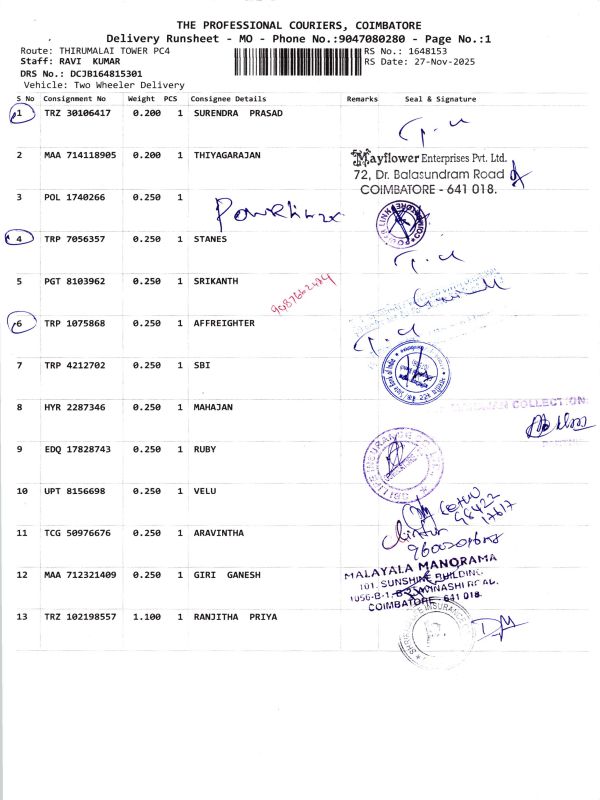 THE PROFESSIONAL COURIERS, COIMBATORE
Delivery Runsheet - MO - Phone No.:9047080280 - Page No.:1
Route: THIRUMALAI TOWER PC4 RS No.: 1648153
Staff: RAVI KUMAR RS Date: 27-Nov-2025
DRS No.: DCJB164815301
Vehicle: Two Wheeler Delivery
S No Consignment No Weight PCS Consignee Details Remarks Seal & Signature
1 TRZ 30106417 0.200 1 SURENDRA PRASAD
2 MAA 714118905 0.200 1 THIYAGARAJAN
Mayflower Enterprises Pvt. Ltd.
72, Dr. Balasundram Road
COIMBATORE - 641 018.
3 POL 1740266 0.250 1
4 TRP 7056357 0.250 1 STANES
5 PGT 8103962 0.250 1 SRIKANTH
6 TRP 1075868 0.250 1 AFFREIGHTER
7 TRP 4212702 0.250 1 SBI
8 HYR 2287346 0.250 1 MAHAJAN
COLLECTION
9 EDQ 17828743 0.250 1 RUBY
10 UPT 8156698 0.250 1 VELU
98422
17617
11 TCG 50976676 0.250 1 ARAVINTHA
12 MAA 712321409 0.250 1 GIRI GANESH
MALAYALA MANORAMA
101, SUNSHINE BUILDING
COIMBATORE - 641 018
13 TRZ 102198557 1.100 1 RANJITHA PRIYA